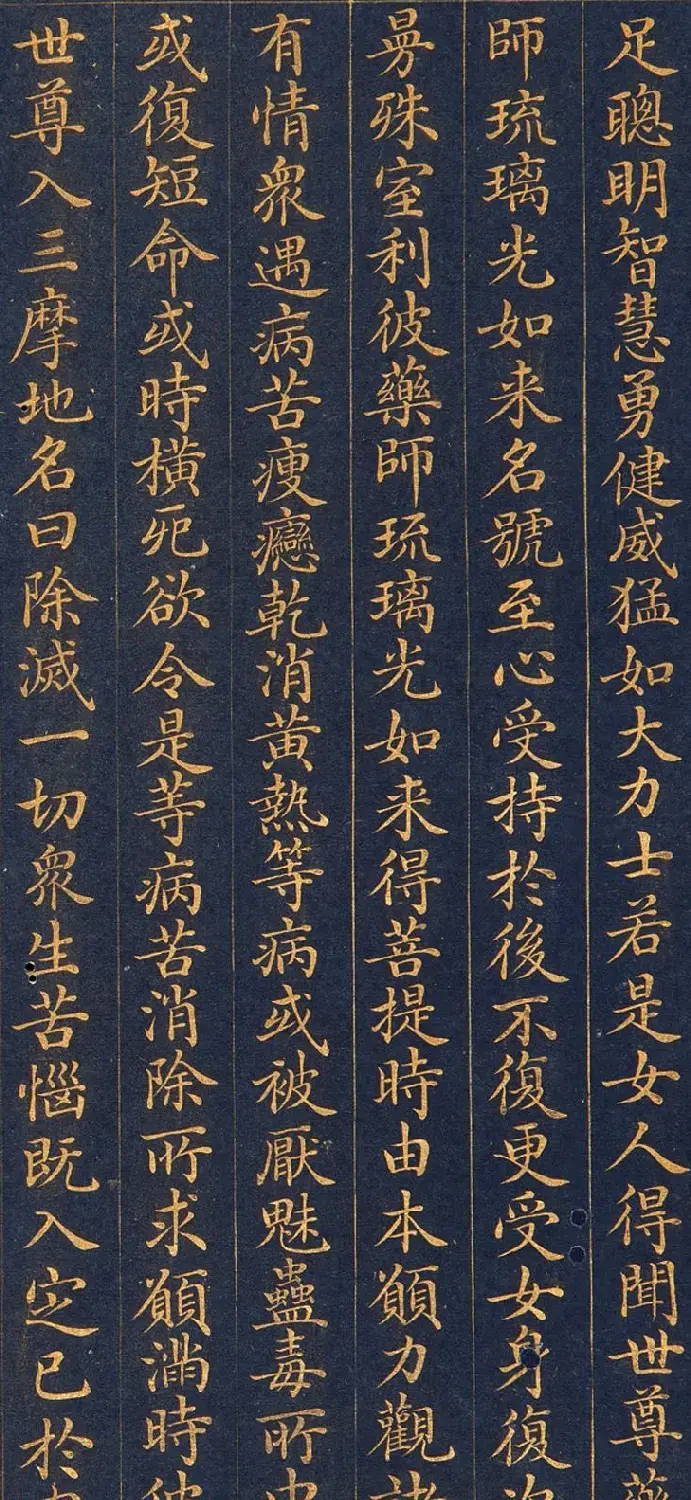 足聰明智慧勇健威猛如大力士若是女人得聞世尊藥
師琉璃光如来名號至心受持於後不復更受女身復次
曼殊室利彼藥師琉璃光如来得菩提時由本願力觀諸
有情衆遇病苦痩癴乾消黄熱等病或被厭魅蠱毒所中
或復短命或時橫死欲令是等病苦消除所求願滿時彼
世尊入三摩地名曰除滅一切衆生苦惱既入定已於